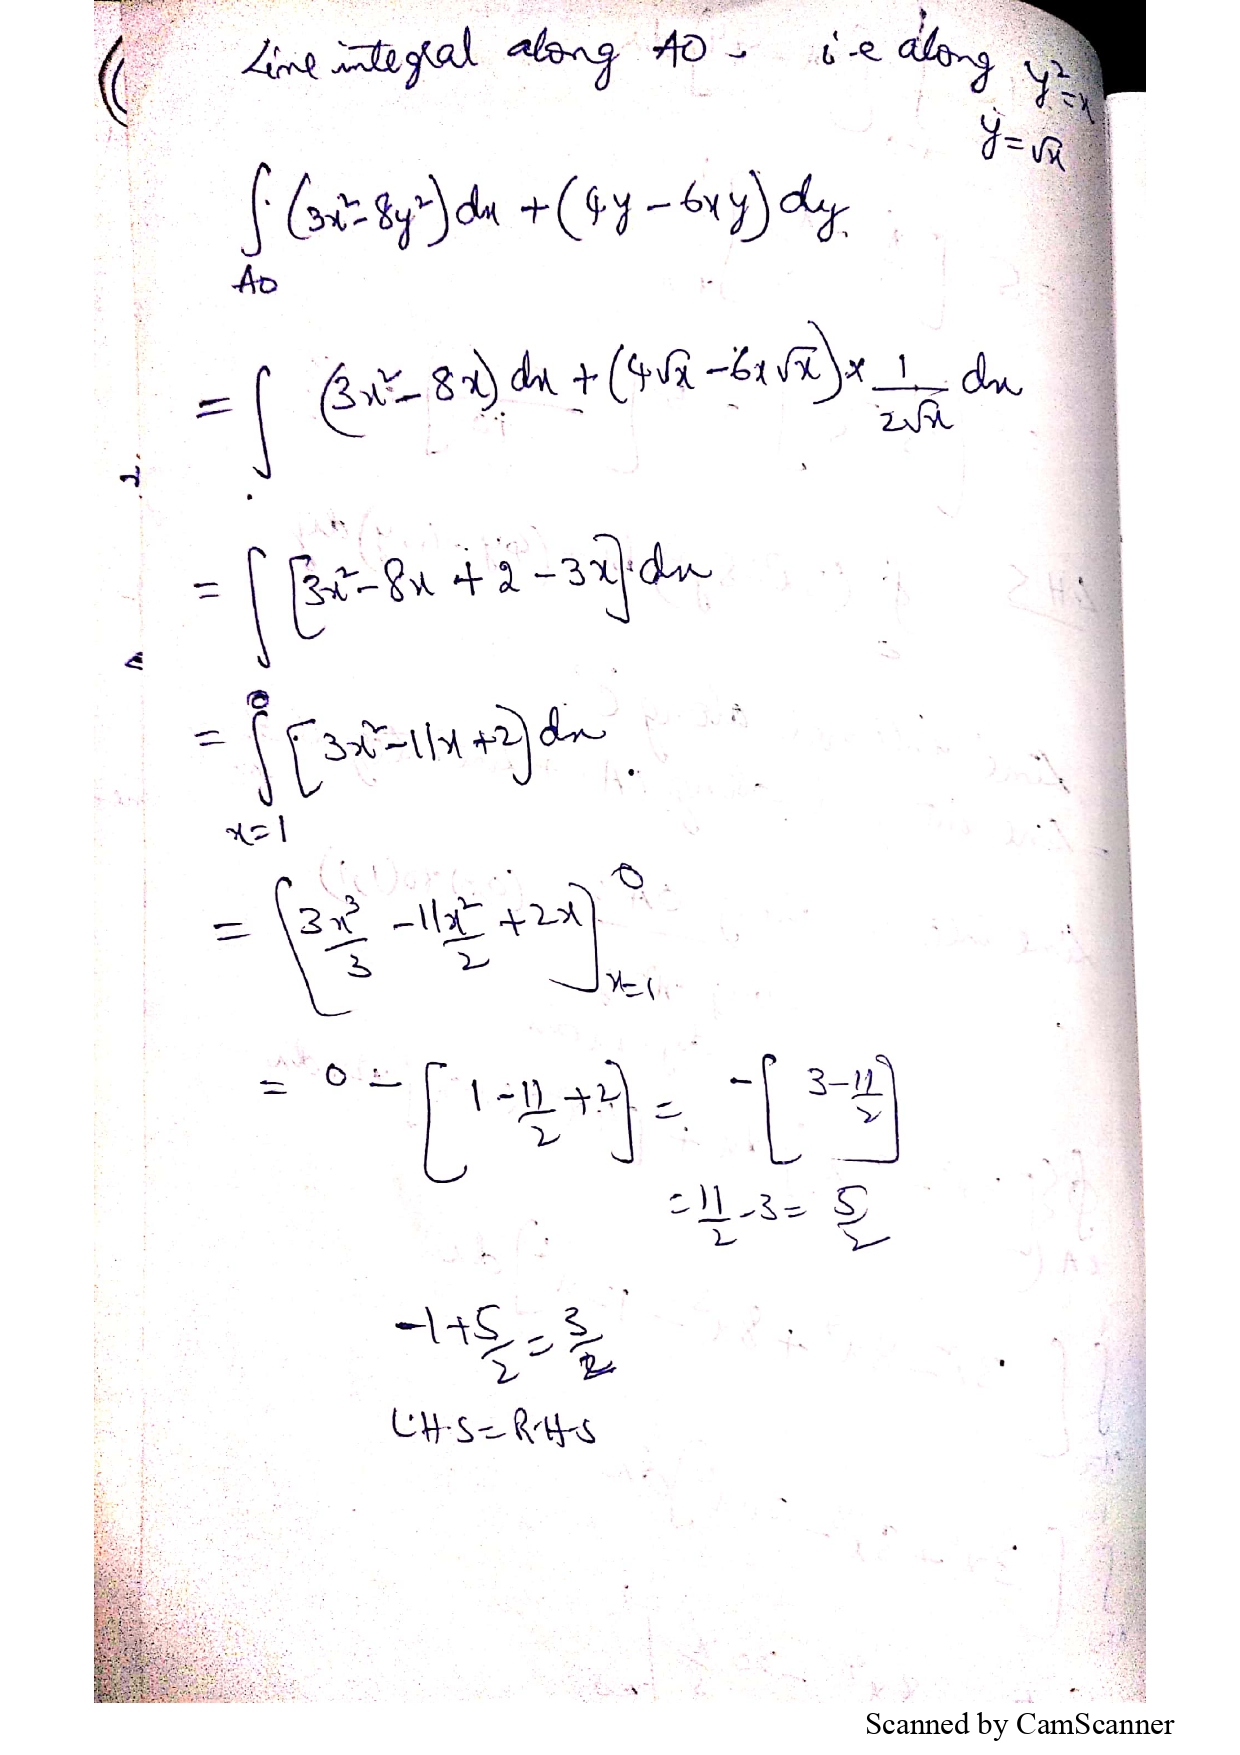 Line integral along AO - i-e along y²=x
y=√x
∫AO (3x²-8y²)dx + (4y-6xy)dy.
= ∫ (3x²-8x)dx + (4√x-6x√x) × 1/2√x dx
= ∫ [3x²-8x+2-3x] dx
= ∫x=1^0 [3x²-11x+2] dx
= [3x³/3 - 11x²/2 + 2x]x=1^0
= 0 - [1-11/2+2] = -[3-11/2]
= 11/2 - 3 = 5/2
-1+5/2 = 3/2
L.H.S = R.H.S
Scanned by CamScanner